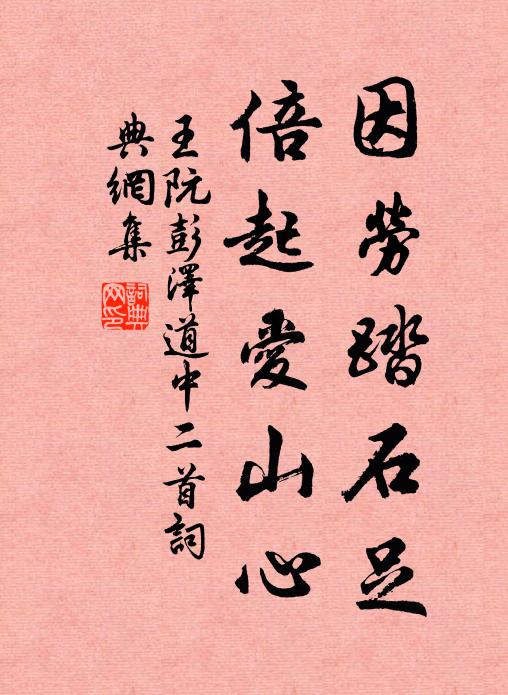 因勞踏石足
倍起愛山心
王阮彭澤道中二首詞
典網集
詞典
网印